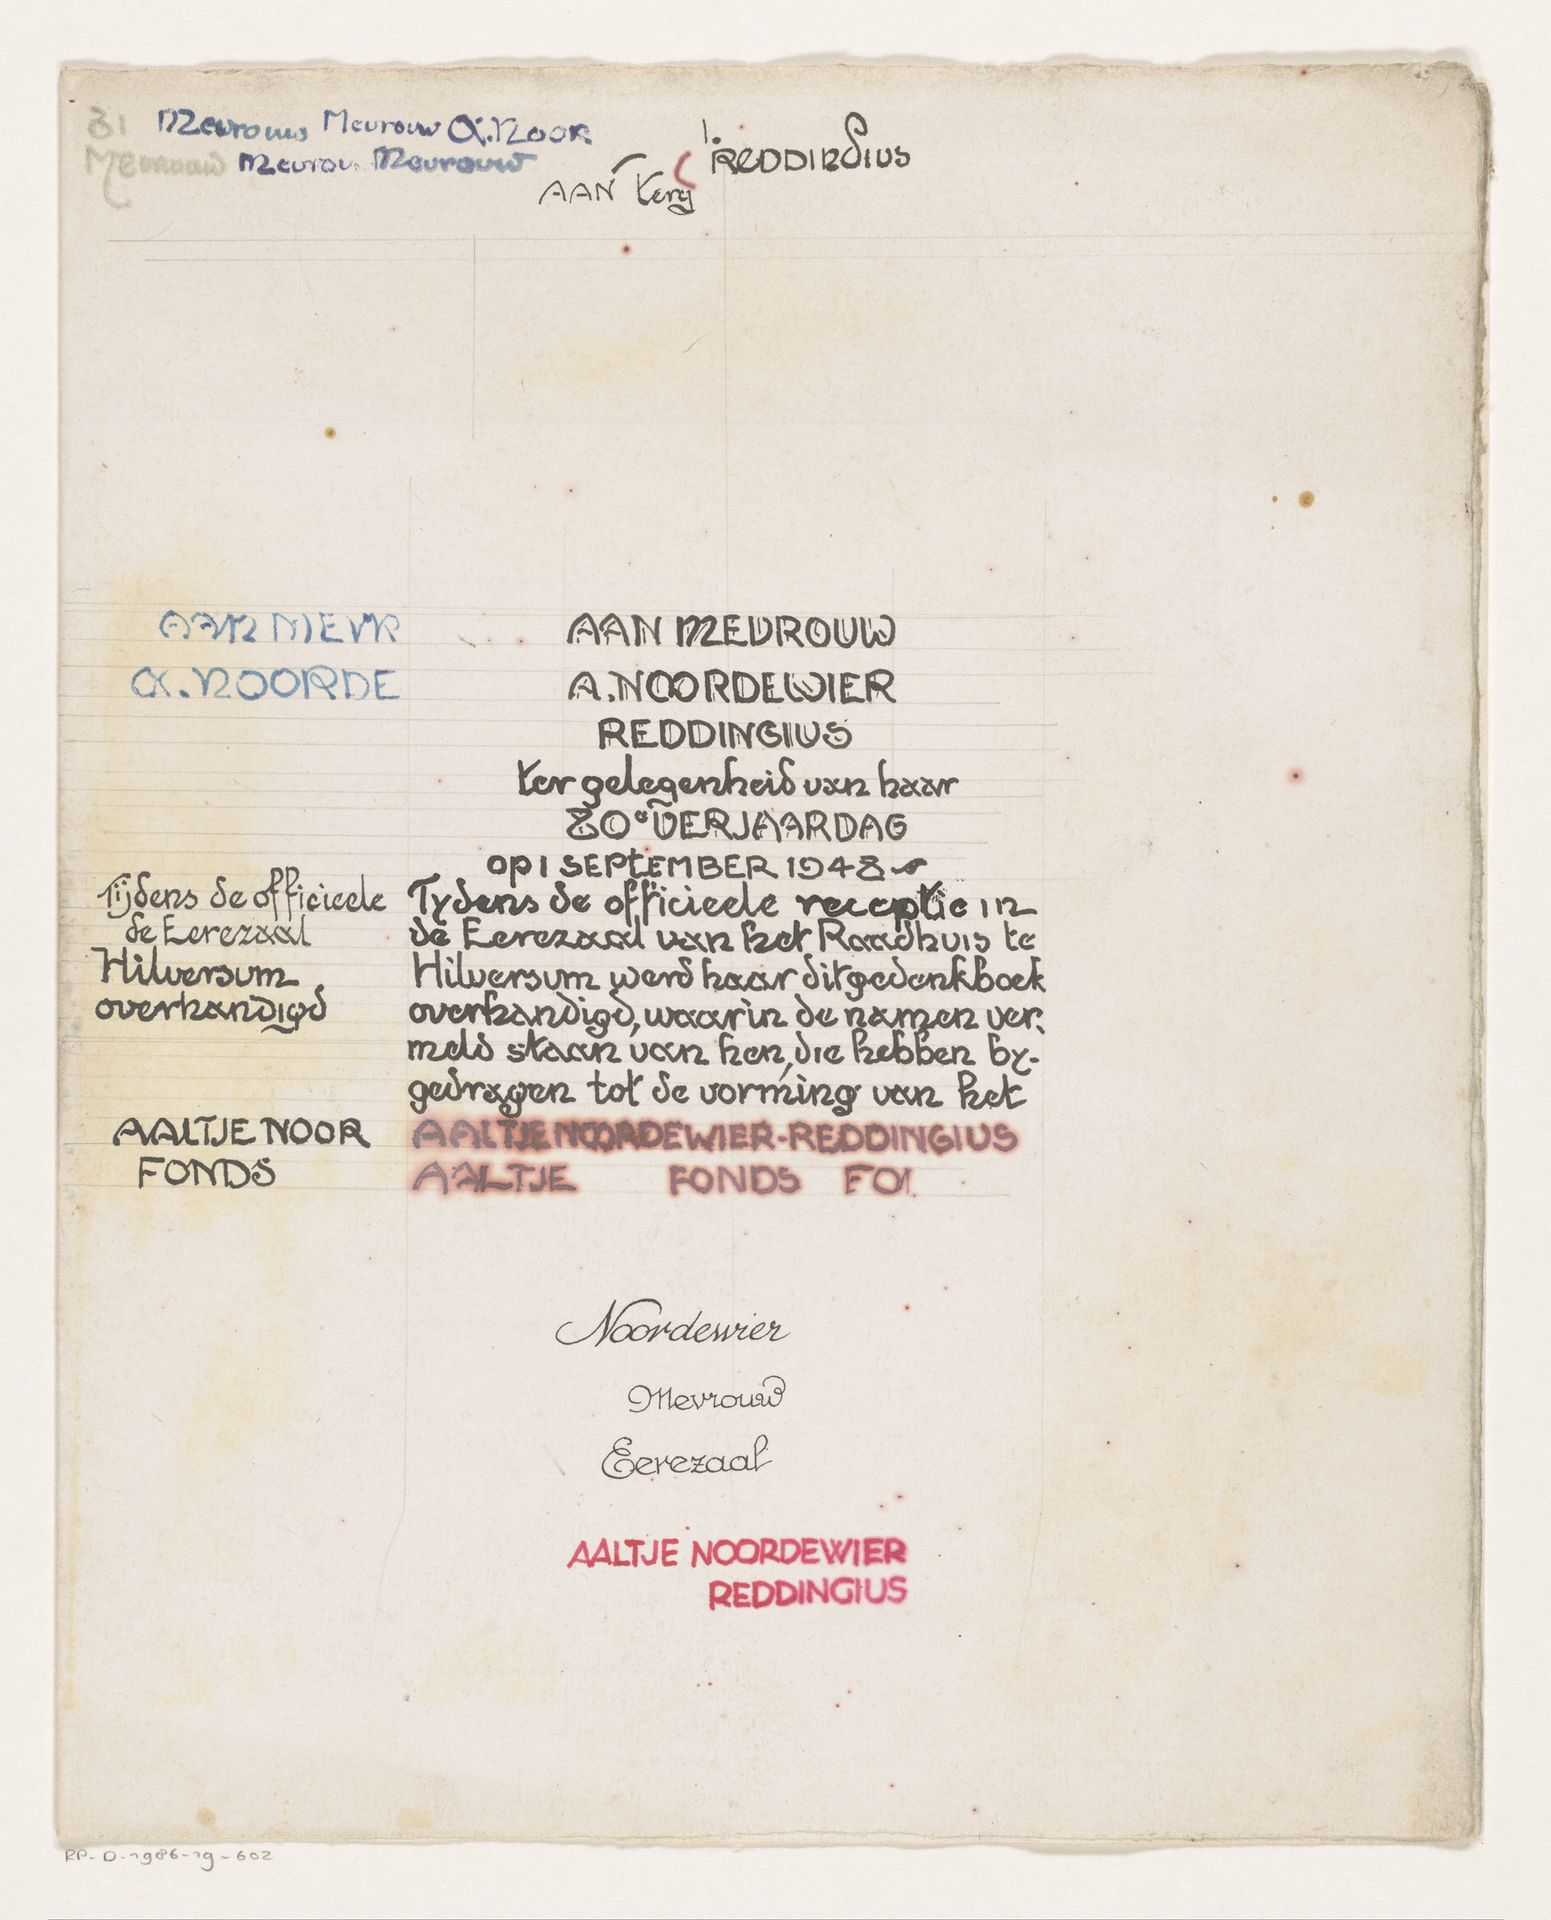 Mevrouw Mevrouw A. NOOR
Mevrouw Mevrou Mevrouw
REDDINGIUS
AAN Terg
AAN MEVR
A. NOORDE
AAN MEVROUW
A. NOORDEWIER
REDDINGIUS
ter gelegenheid van haar
80e VERJAARDAG
op 1 SEPTEMBER 1948
Tijdens de officieele
de Eerezaal
Hilversum
overhandigd
Tydens de officieele receptie in
de Eerezaal van het Raadhuis te
Hilversum werd haar dit gedenkboek
overhandigd, waarin de namen ver-
meld staan van hen, die hebben by-
gedragen tot de vorming van het
AALTJE NOOR
FONDS
AALTJE NOORDEWIER-REDDINGIUS
AALTJE FONDS FO
Noordewier
Mevrouw
Eerezaal
AALTJE NOORDEWIER
REDDINGIUS
RP-D-1986-19-602